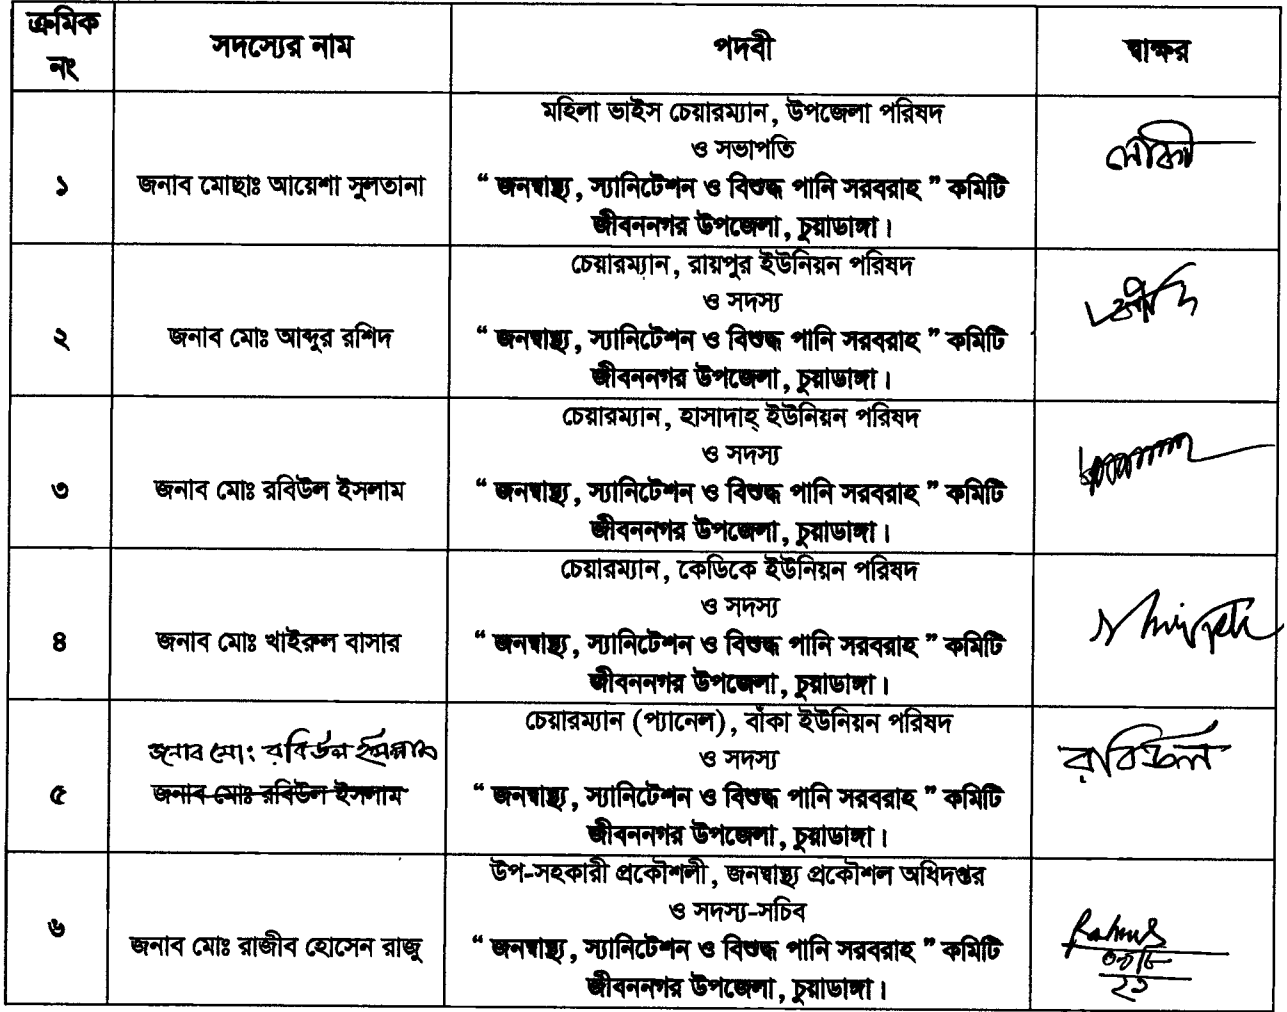 ক্রমিক
নং
সদস্যের নাম
পদবী
স্বাক্ষর
১
জনাব মোছাঃ আয়েশা সুলতানা
মহিলা ভাইস চেয়ারম্যান, উপজেলা পরিষদ
ও সভাপতি
“ জনস্বাস্থ্য, স্যানিটেশন ও বিশুদ্ধ পানি সরবরাহ ” কমিটি
জীবননগর উপজেলা, চুয়াডাঙ্গা।
২
জনাব মোঃ আব্দুর রশিদ
চেয়ারম্যান, রায়পুর ইউনিয়ন পরিষদ
ও সদস্য
“ জনস্বাস্থ্য, স্যানিটেশন ও বিশুদ্ধ পানি সরবরাহ ” কমিটি
জীবননগর উপজেলা, চুয়াডাঙ্গা।
৩
জনাব মোঃ রবিউল ইসলাম
চেয়ারম্যান, হাসাদাহ্ ইউনিয়ন পরিষদ
ও সদস্য
“ জনস্বাস্থ্য, স্যানিটেশন ও বিশুদ্ধ পানি সরবরাহ ” কমিটি
জীবননগর উপজেলা, চুয়াডাঙ্গা।
৪
জনাব মোঃ খাইরুল বাসার
চেয়ারম্যান, কেডিকে ইউনিয়ন পরিষদ
ও সদস্য
“ জনস্বাস্থ্য, স্যানিটেশন ও বিশুদ্ধ পানি সরবরাহ ” কমিটি
জীবননগর উপজেলা, চুয়াডাঙ্গা।
৫
জনাব মো: রবিউল ইসলাম
জনাব মোঃ রবিউল ইসলাম
চেয়ারম্যান (প্যানেল), বাঁকা ইউনিয়ন পরিষদ
ও সদস্য
“ জনস্বাস্থ্য, স্যানিটেশন ও বিশুদ্ধ পানি সরবরাহ ” কমিটি
জীবননগর উপজেলা, চুয়াডাঙ্গা।
রবিউল
৬
জনাব মোঃ রাজীব হোসেন রাজু
উপ-সহকারী প্রকৌশলী, জনস্বাস্থ্য প্রকৌশল অধিদপ্তর
ও সদস্য-সচিব
“ জনস্বাস্থ্য, স্যানিটেশন ও বিশুদ্ধ পানি সরবরাহ ” কমিটি
জীবননগর উপজেলা, চুয়াডাঙ্গা।